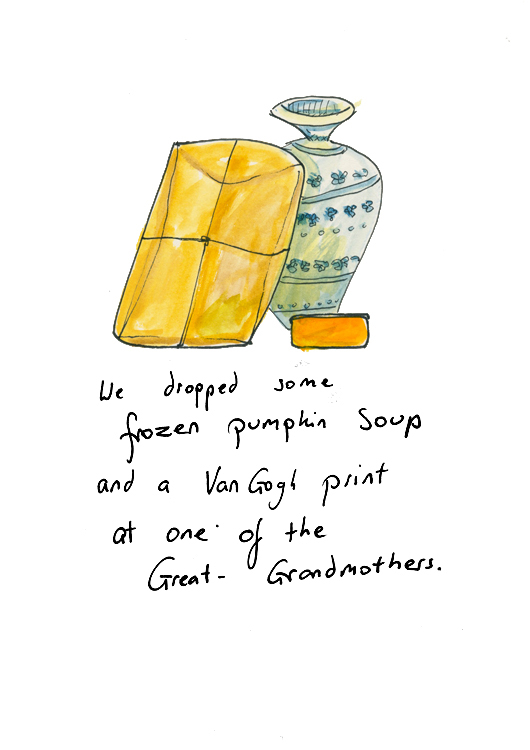 We dropped some
frozen pumpkin Soup
and a Van Gogh print
at one of the
Great- Grandmothers.